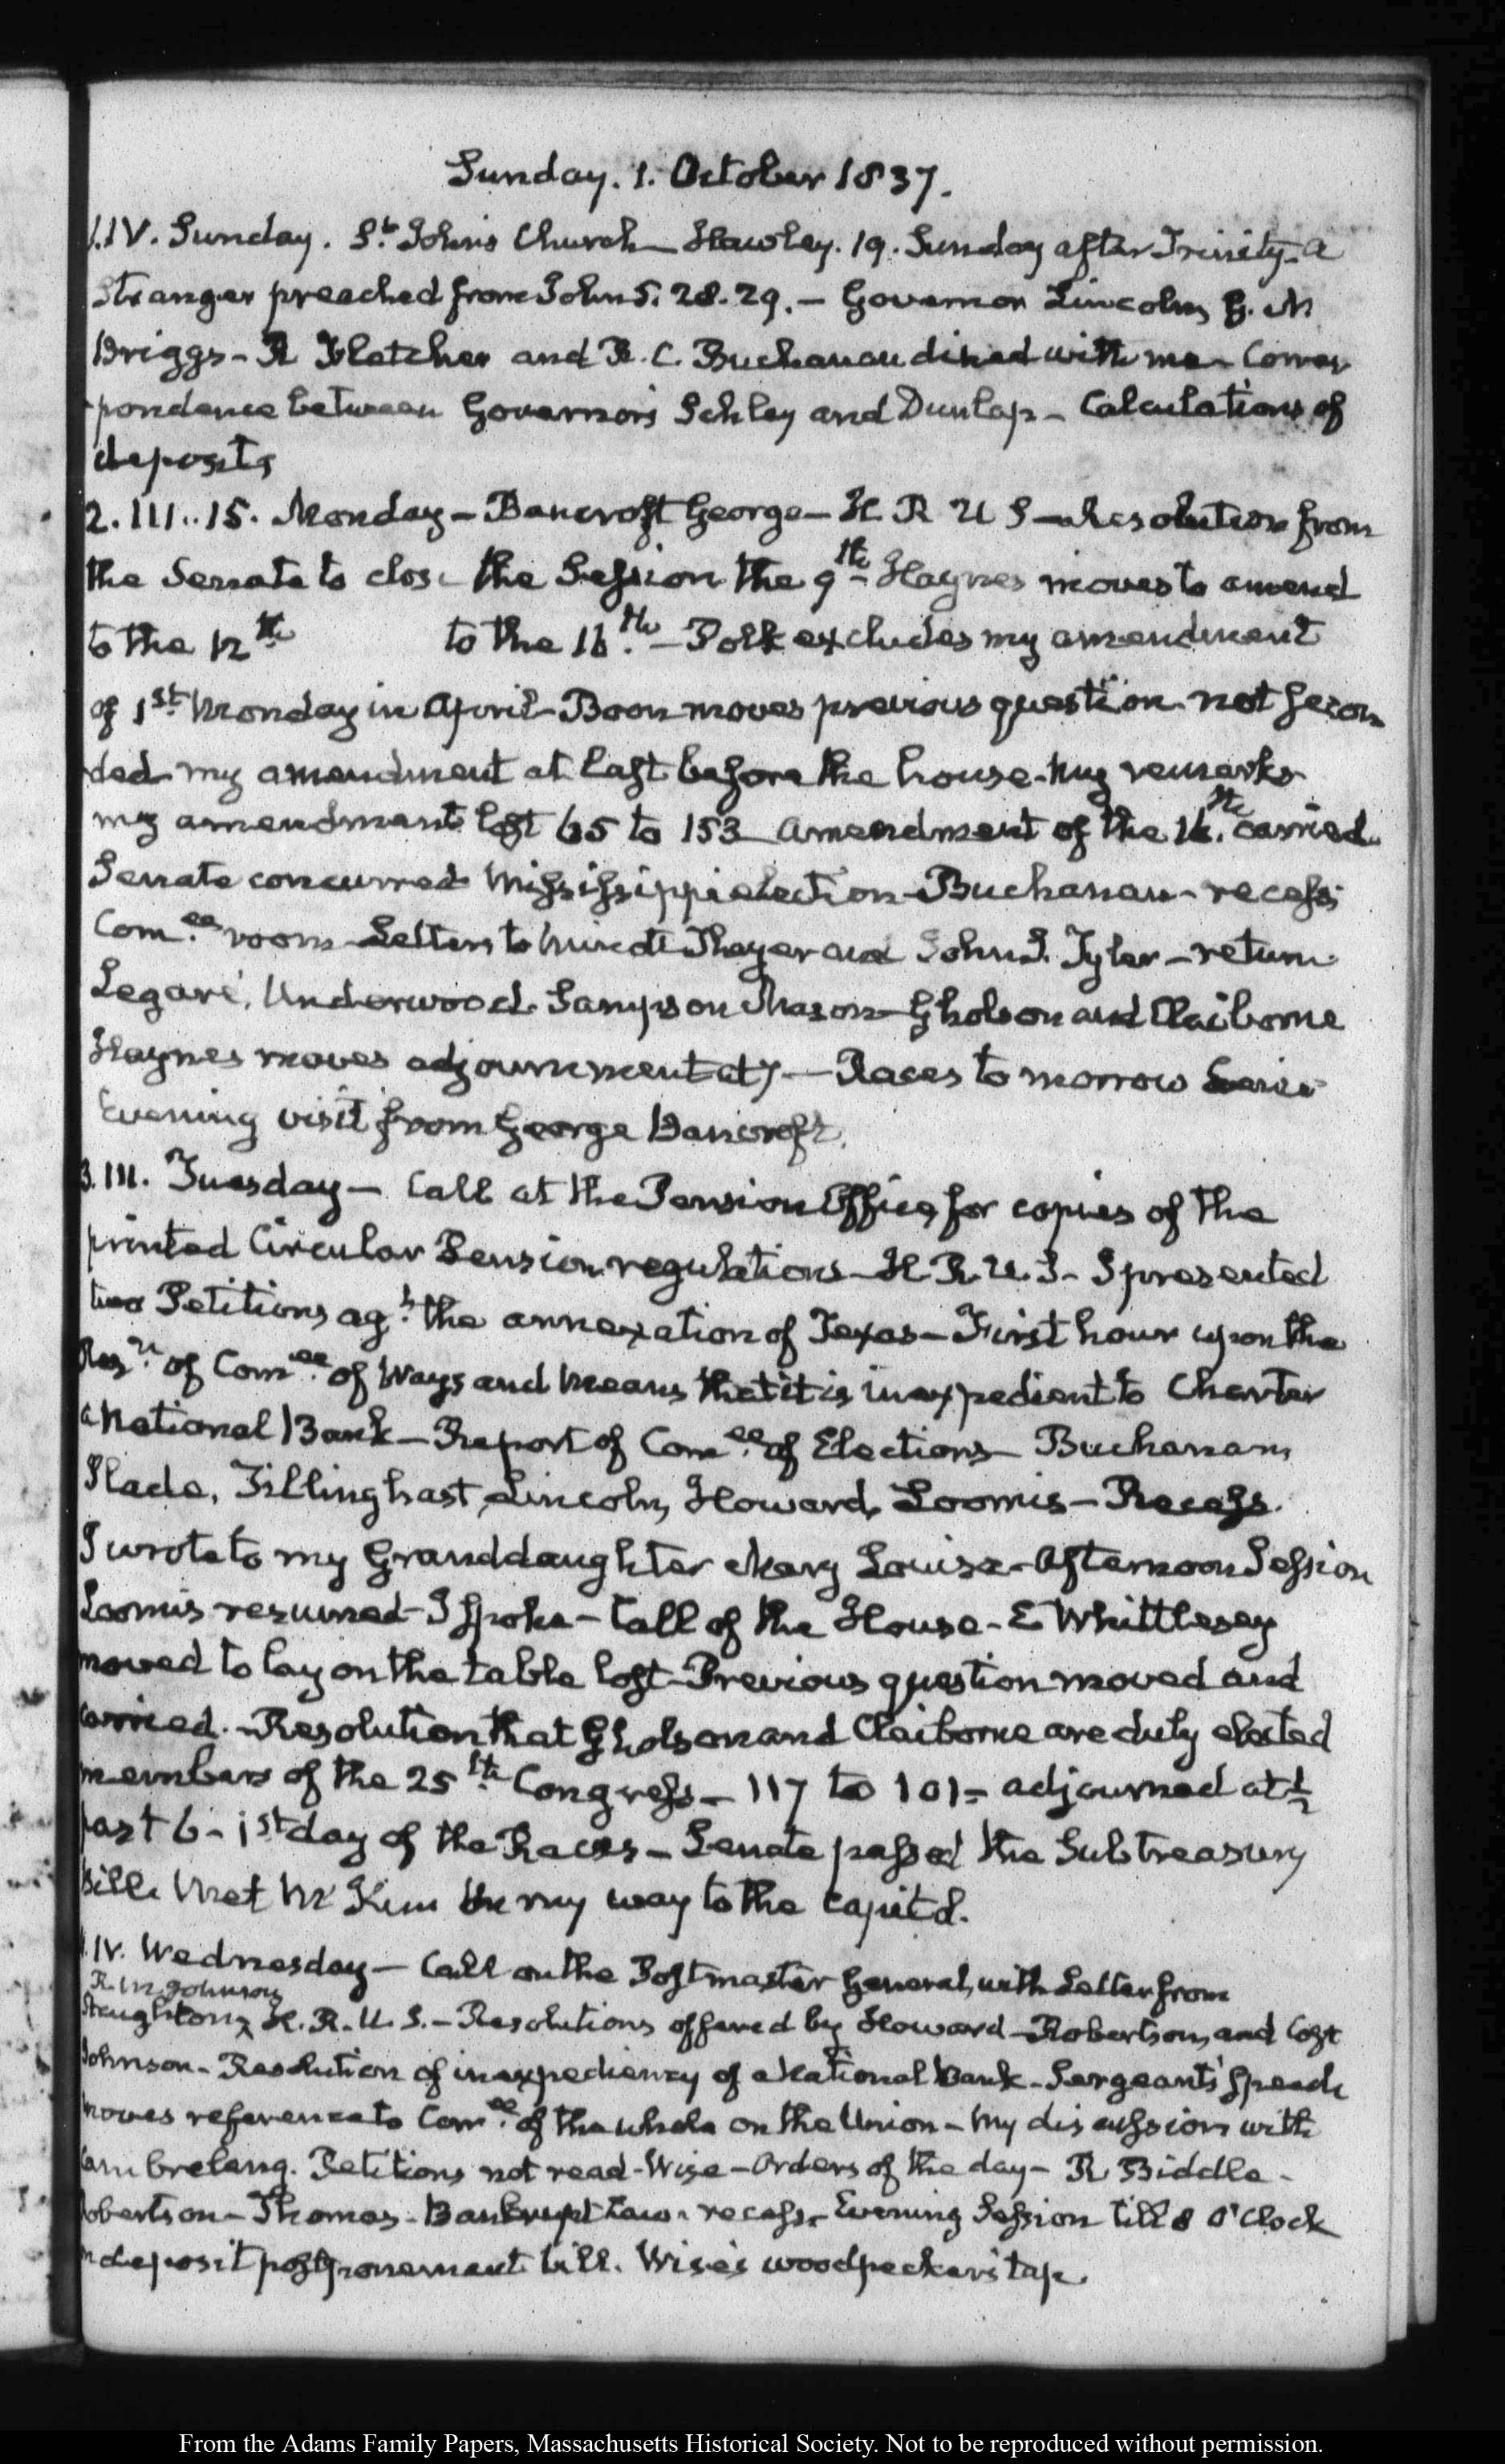 Sunday. 1. October 1837.
1. IV. Sunday. St. John's Church Hawley. 19. Sunday after Trinity. A
stranger preached from John 5. 28. 29. — Governor Lincoln, G. N
Briggs — R Fletcher and R. C. Buchanan dined with me — Corres
pondence between Governors Schley and Dunlap — Calculations of
deposits
2. III..15. Monday — Bancroft George — H R U S — Resolution from
the Senate to close the Session the 9th Haynes moves to amend
to the 12th to the 16.th — Polk excludes my amendment
of 1st Monday in April — Boon moves previous question not secon
ded my amendment at last before the house — my remarks
my amendment lost 65 to 153 amendment of the 16.th carried.
Senate concurred Mississippi election — Buchanan — recess
Com.ee room — Letters to Minott Thayer and John S. Tyler — return
Legaré, Underwood Sampson Mason — Gholson and Claiborne
Haynes moves adjournment at 7 — Races to morrow
Evening visit from George Bancroft.
3. III. Tuesday — Call at the Pension Office for copies of the
printed Circular Pension regulations — H. R. U. S — I presented
two Petitions agt. the annexation of Texas — First hour upon the
Resn. of Comee. of Ways and Means that it is inexpedient to Charter
a National Bank — Report of Comee. of Elections — Buchanan,
Slade, Tillinghast Lincoln, Howard Loomis — Recess.
I wrote to my Granddaughter Mary Louisa — Afternoon Session
Loomis resumed — I spoke — Call of the House — E Whittlesey
moved to lay on the table lost — Previous question moved and
carried. — Resolution that Gholson and Claiborne are duly elected
members of the 25th. Congress — 117 to 101 = adjourned at ½
past 6 — 1st day of the Races — Senate passed the Subtreasury
bill. Met Mr Kim on my way to the Capitol.
IV. Wednesday — Call on the Postmaster General, with Letter from
R. M. Johnson
Staughton, H. R. U. S. — Resolutions offered by Howard — Robertson, and Cost
Johnson — Resolution of inexpediency of a National Bank — Sergeant's speech
moves reference to Comee. of the whole on the Union — My discussion with
Cambreleng. Petitions not read — Wise — Orders of the day — R Biddle —
Robertson — Thomas — Bankrupt Law — recess — Evening Session till 8 O'Clock
on deposit postponement bill. Wise's woodpecker's tap.
From the Adams Family Papers, Massachusetts Historical Society. Not to be reproduced without permission.